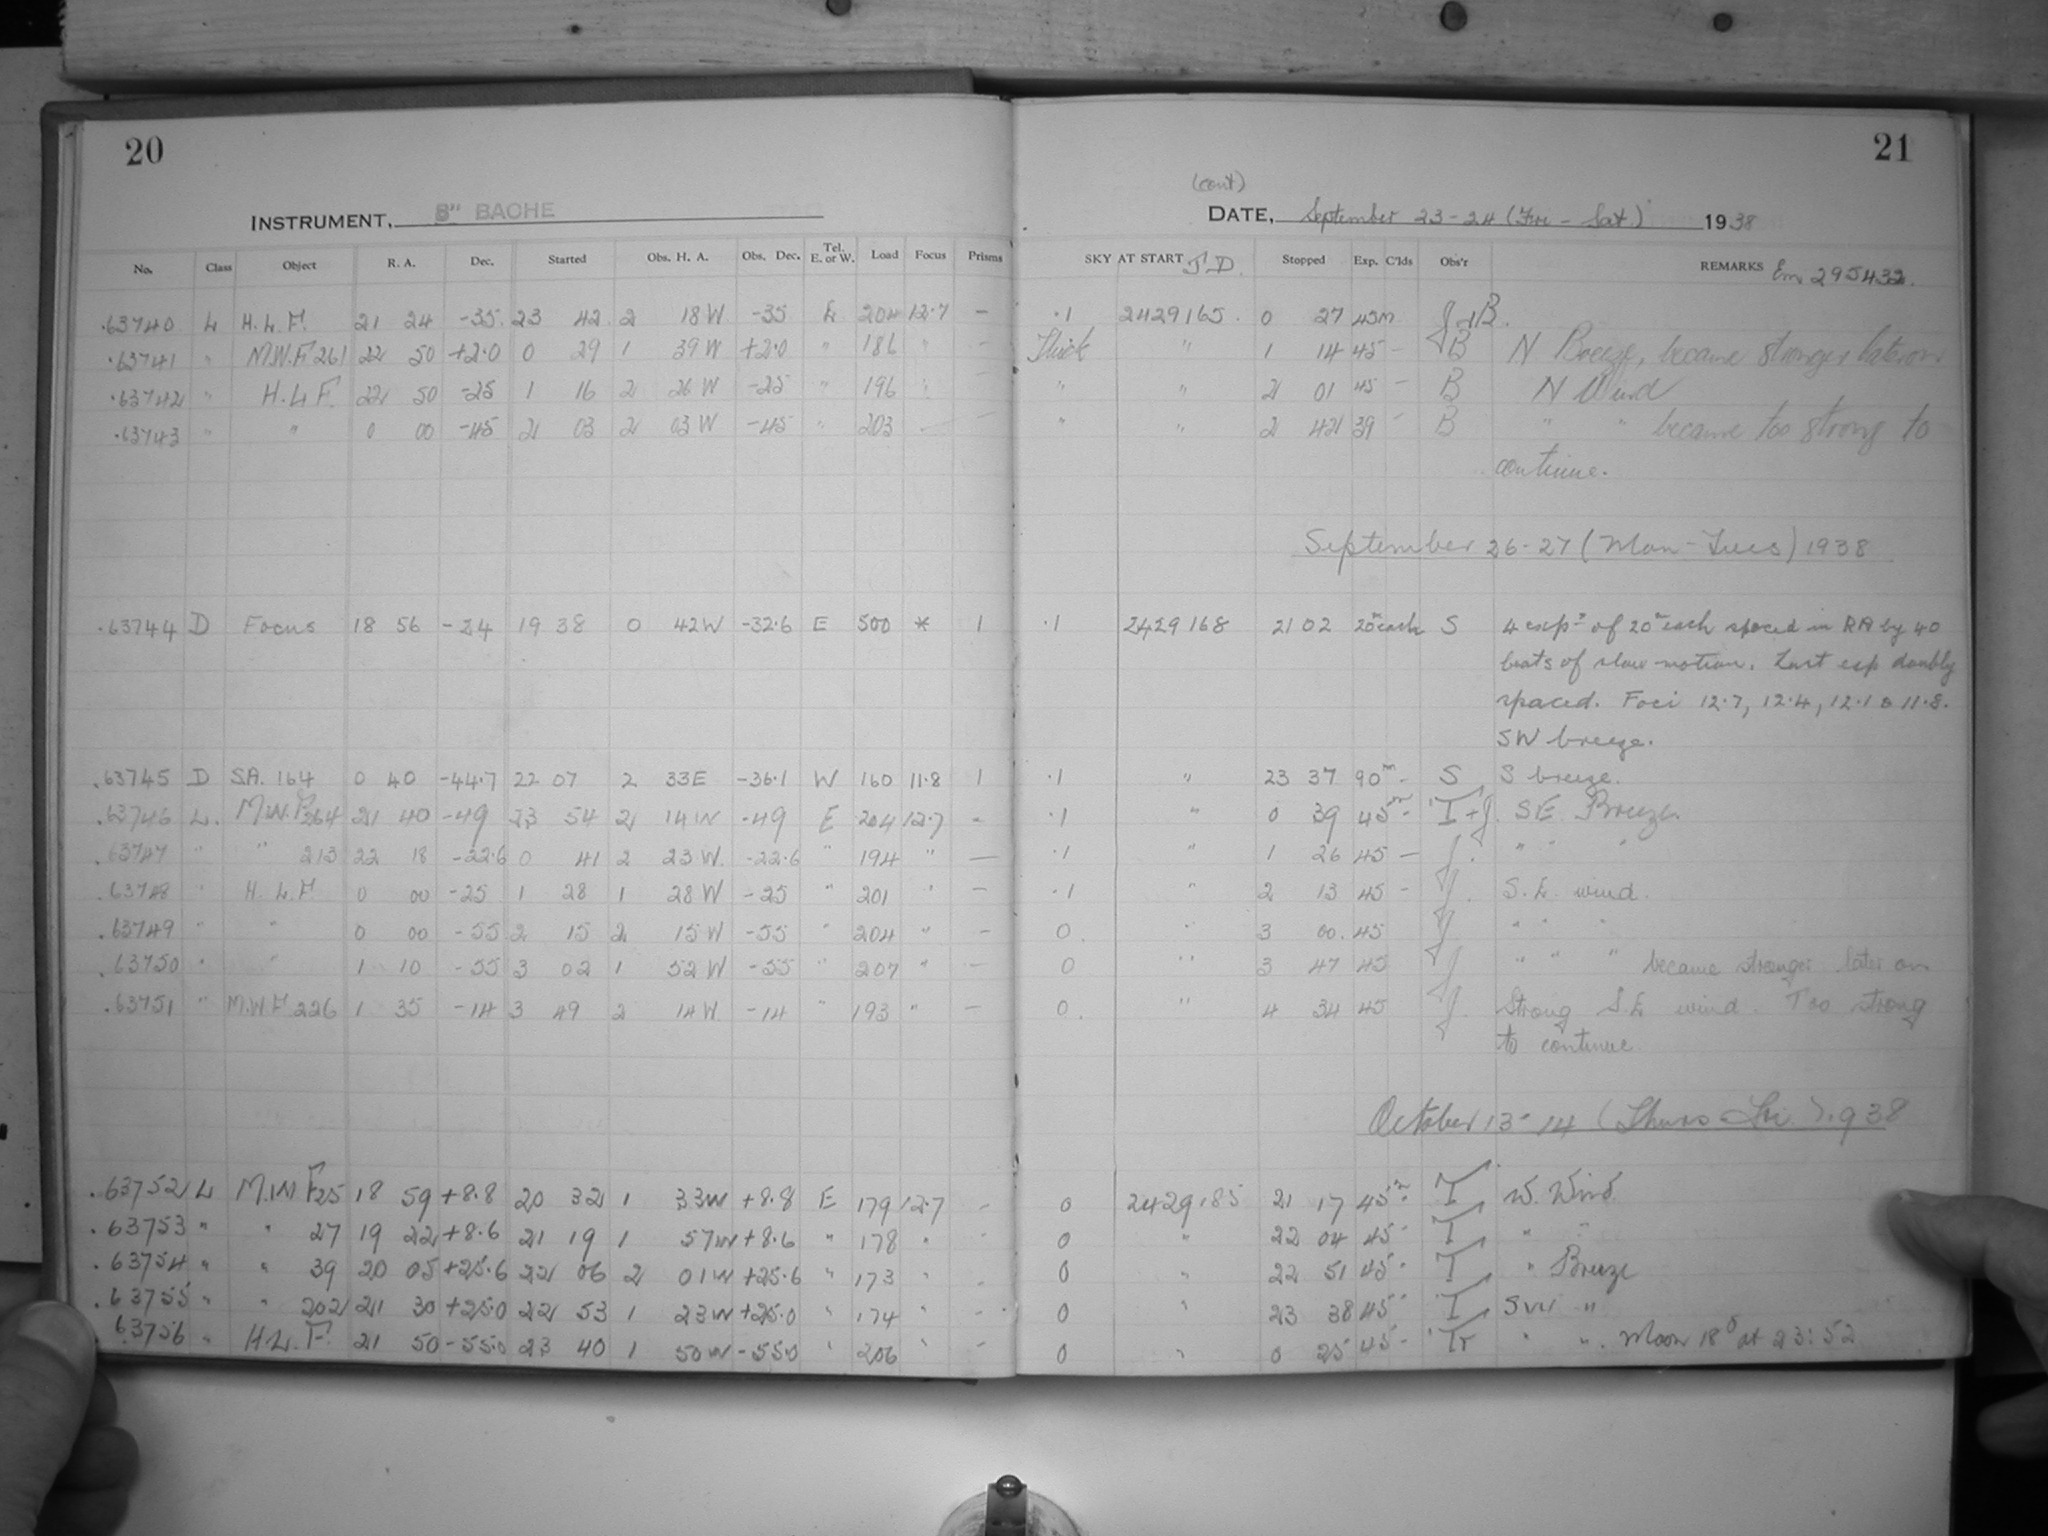 20
INSTRUMENT, 8" BACHE
No. Class Object R. A. Dec. Started Obs. H. A. Obs. Dec. Tel. E. or W. Load Focus Prisms
.63740 L H.L.F. 21 24 -35. 23 42 2 18 W -35 E 204 12.7 -
.63741 " M.W.F 261 22 50 +2.0 0 29 1 39 W +2.0 " 186 " -
.63742 " H.L.F. 22 50 -25 1 16 2 26 W -25 " 196 " -
.63743 " " 0 00 -45 2 03 2 03 W -45 " 203 - -
.63744 D Focus 18 56 -24 19 38 0 42 W -32.6 E 500 * 1
.63745 D S.A. 164 0 40 -44.7 22 07 2 33 E -36.1 W 160 11.8 1
.63746 L. M.W.F 264 21 40 -49 23 54 2 14 W -49 E 204 12.7 -
.63747 " " 213 22 18 -22.6 0 41 2 23 W. -22.6 " 194 " -
.63748 " H.L.F 0 00 -25 1 28 1 28 W -25 " 201 " -
.63749 " " 0 00 -55 2 15 2 15 W -55 " 204 " -
.63750 " " 1 10 -55 3 02 1 52 W -55 " 207 " -
.63751 " M.W.F 226 1 35 -14 3 49 2 14 W -14 " 193 " -
.63752 L M.W.F 25 18 59 +8.8 20 32 1 33 W +8.8 E 179 12.7 -
.63753 " " 27 19 22 +8.6 21 19 1 57 W +8.6 " 178 " -
.63754 " " 39 20 05 +25.6 22 06 2 01 W +25.6 " 173 " -
.63755 " " 202 21 30 +25.0 22 53 1 23 W +25.0 " 174 " -
.63756 " H.L.F. 21 50 -55.0 23 40 1 50 W -55.0 " 206 " -
21
(cont)
DATE, September 23-24 (Fri - Sat.) 1938
SKY AT START J.D. Stopped Exp. C'lds Obs'r REMARKS Em 295432.
.1 2429165. 0 27 45m J+B.
Thick " 1 14 45 - B N Breeze, became stronger later on.
" " 2 01 45 - B N Wind
" " 2 42 39 - B " " became too strong to
continue.
September 26-27 (Mon-Tues) 1938
.1 2429168 21 02 20m each S 4 exps of 20m each spaced in RA by 40
beats of slow motion. Last exp doubly
spaced. Foci 12.7, 12.4, 12.1 & 11.8.
SW breeze.
.1 " 23 37 90m - S S breeze.
.1 " 0 39 45m - T+J. S E Breeze.
.1 " 1 26 45 - J. " " "
.1 " 2 13 45 - J. S. E. wind.
0. " 3 00. 45 J " " "
0 " 3 47 45 J " " " became stronger later on
0. " 4 34 45 J. Strong S.E wind. Too strong
to continue
October 13-14 (Thurs-Fri.) 1938
0 2429185 21 17 45m - T W. Wind
0 " 22 04 45 - T " "
0 " 22 51 45 - T " Breeze
0 " 23 38 45 - T SW "
0 " 0 25 45 - Tr " ". Moon 18° at 23:52